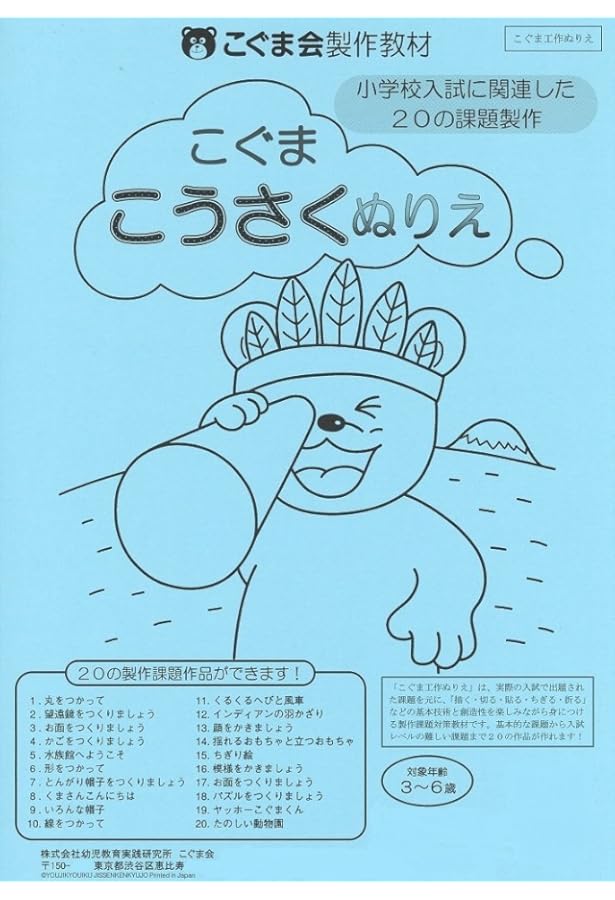 こぐま会製作教材
こぐま工作ぬりえ
小学校入試に関連した
20の課題製作
こぐま
こうさくぬりえ
20の製作課題作品ができます!
1. 丸をつかって
2. 望遠鏡をつくりましょう
3. お面をつくりましょう
4. かごをつくりましょう
5. 水族館へようこそ
6. 形をつかって
7. とんがり帽子をつくりましょう
8. くまさんこんにちは
9. いろんな帽子
10. 線をつかって
11. くるくるへびと風車
12. インディアンの羽かざり
13. 顔をかきましょう
14. 揺れるおもちゃと立つおもちゃ
15. ちぎり絵
16. 模様をかきましょう
17. お面をつくりましょう
18. パズルをつくりましょう
19. ヤッホーこぐまくん
20. たのしい動物園
「こぐま工作ぬりえ」は、実際の入試で出題され
た課題を元に、「描く・切る・貼る・ちぎる・折る」
などの基本技術と創造性を楽しみながら身につけ
る製作課題対策教材です。基本的な課題から入試
レベルの難しい課題まで20の作品が作れます!
対象年齢
3〜6歳
株式会社幼児教育実践研究所 こぐま会
〒150- 東京都渋谷区恵比寿
©YOUJIKYOUIKU JISSENKENKYUJO Printed in Japan